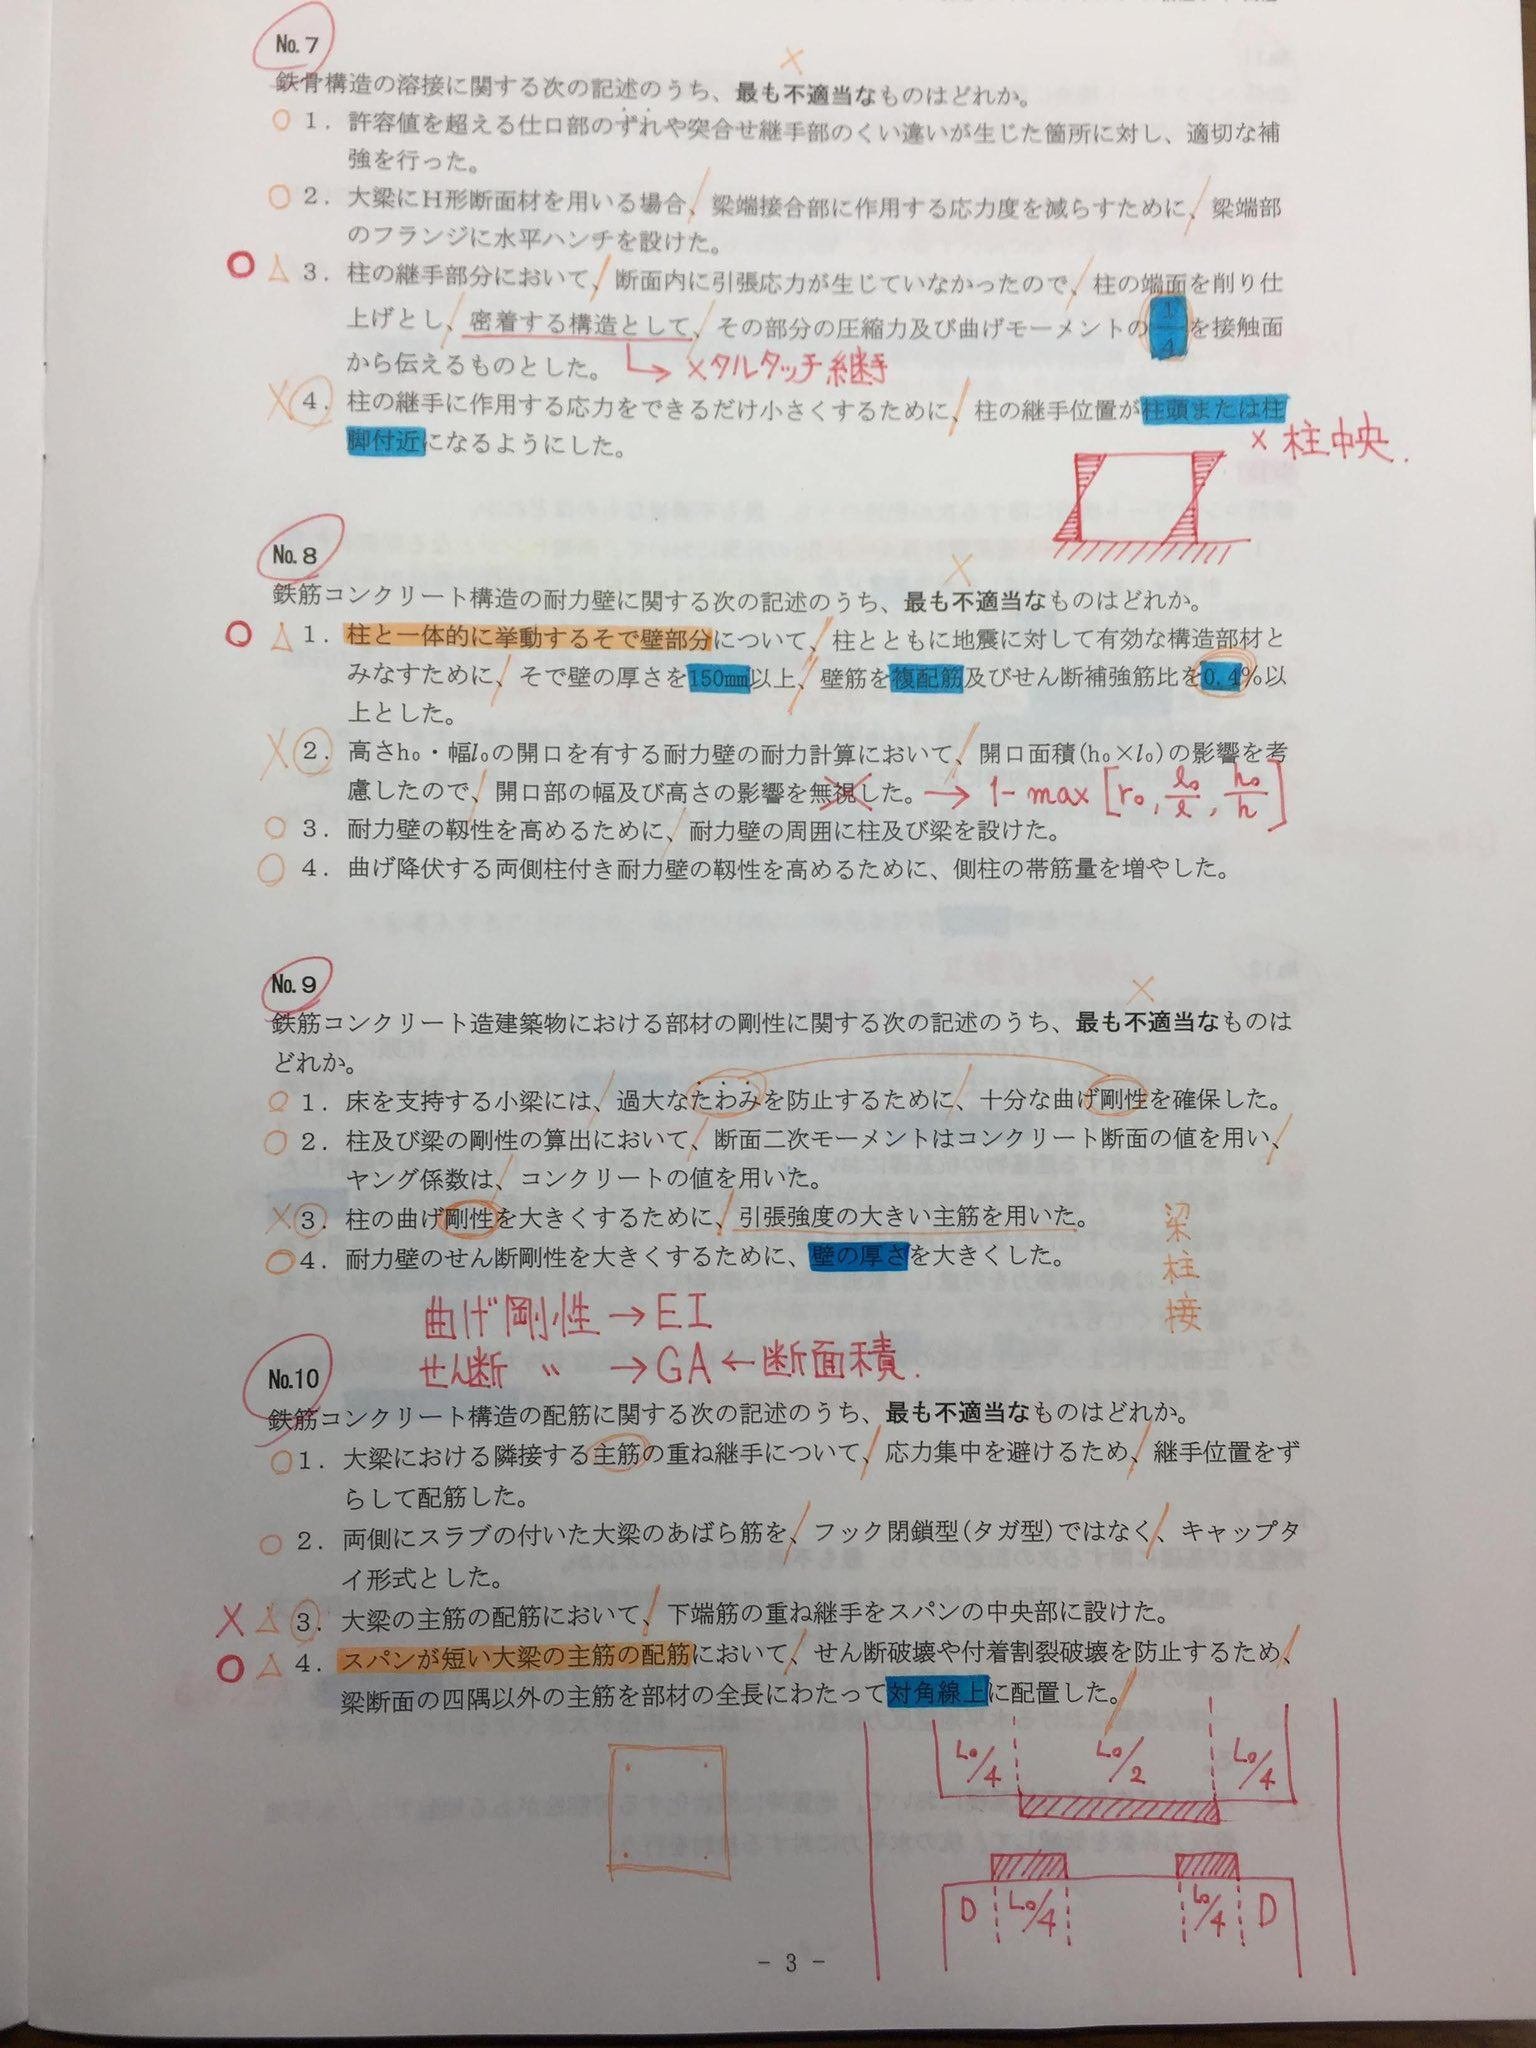 No.7
×
鉄骨構造の溶接に関する次の記述のうち、最も不適当なものはどれか。
○ 1. 許容値を超える仕口部のずれや突合せ継手部のくい違いが生じた箇所に対し、適切な補
強を行った。
○ 2. 大梁にH形断面材を用いる場合、梁端接合部に作用する応力度を減らすために、梁端部
のフランジに水平ハンチを設けた。
○ △ 3. 柱の継手部分において、断面内に引張応力が生じていなかったので、柱の端面を削り仕
上げとし、密着する構造として、その部分の圧縮力及び曲げモーメントの1/4を接触面
から伝えるものとした。 → メタルタッチ継手
× 4. 柱の継手に作用する応力をできるだけ小さくするために、柱の継手位置が柱頭または柱
脚付近になるようにした。
× 柱中央.
No.8
×
鉄筋コンクリート構造の耐力壁に関する次の記述のうち、最も不適当なものはどれか。
○ △ 1. 柱と一体的に挙動するそで壁部分について、柱とともに地震に対して有効な構造部材と
みなすために、そで壁の厚さを150mm以上、壁筋を複配筋及びせん断補強筋比を0.4%以
上とした。
× 2. 高さh₀・幅l₀の開口を有する耐力壁の耐力計算において、開口面積(h₀×l₀)の影響を考
慮したので、開口部の幅及び高さの影響を無視した。 → 1- max [r₀, l₀/l, h₀/h]
○ 3. 耐力壁の靱性を高めるために、耐力壁の周囲に柱及び梁を設けた。
○ 4. 曲げ降伏する両側柱付き耐力壁の靱性を高めるために、側柱の帯筋量を増やした。
No.9
×
鉄筋コンクリート造建築物における部材の剛性に関する次の記述のうち、最も不適当なものは
どれか。
○ 1. 床を支持する小梁には、過大なたわみを防止するために、十分な曲げ剛性を確保した。
○ 2. 柱及び梁の剛性の算出において、断面二次モーメントはコンクリート断面の値を用い、
ヤング係数は、コンクリートの値を用いた。
× 3. 柱の曲げ剛性を大きくするために、引張強度の大きい主筋を用いた。
○ 4. 耐力壁のせん断剛性を大きくするために、壁の厚さを大きくした。
梁
柱
接
曲げ剛性 → EI
せん断 〃 → GA ← 断面積.
No.10
鉄筋コンクリート構造の配筋に関する次の記述のうち、最も不適当なものはどれか。
○ 1. 大梁における隣接する主筋の重ね継手について、応力集中を避けるため、継手位置をず
らして配筋した。
○ 2. 両側にスラブの付いた大梁のあばら筋を、フック閉鎖型(タガ型)ではなく、キャップタ
イ形式とした。
× △ 3. 大梁の主筋の配筋において、下端筋の重ね継手をスパンの中央部に設けた。
○ △ 4. スパンが短い大梁の主筋の配筋において、せん断破壊や付着割裂破壊を防止するため、
梁断面の四隅以外の主筋を部材の全長にわたって対角線上に配置した。
L₀/4 L₀/2 L₀/4
D L₀/4 L₀/4 D
- 3 -